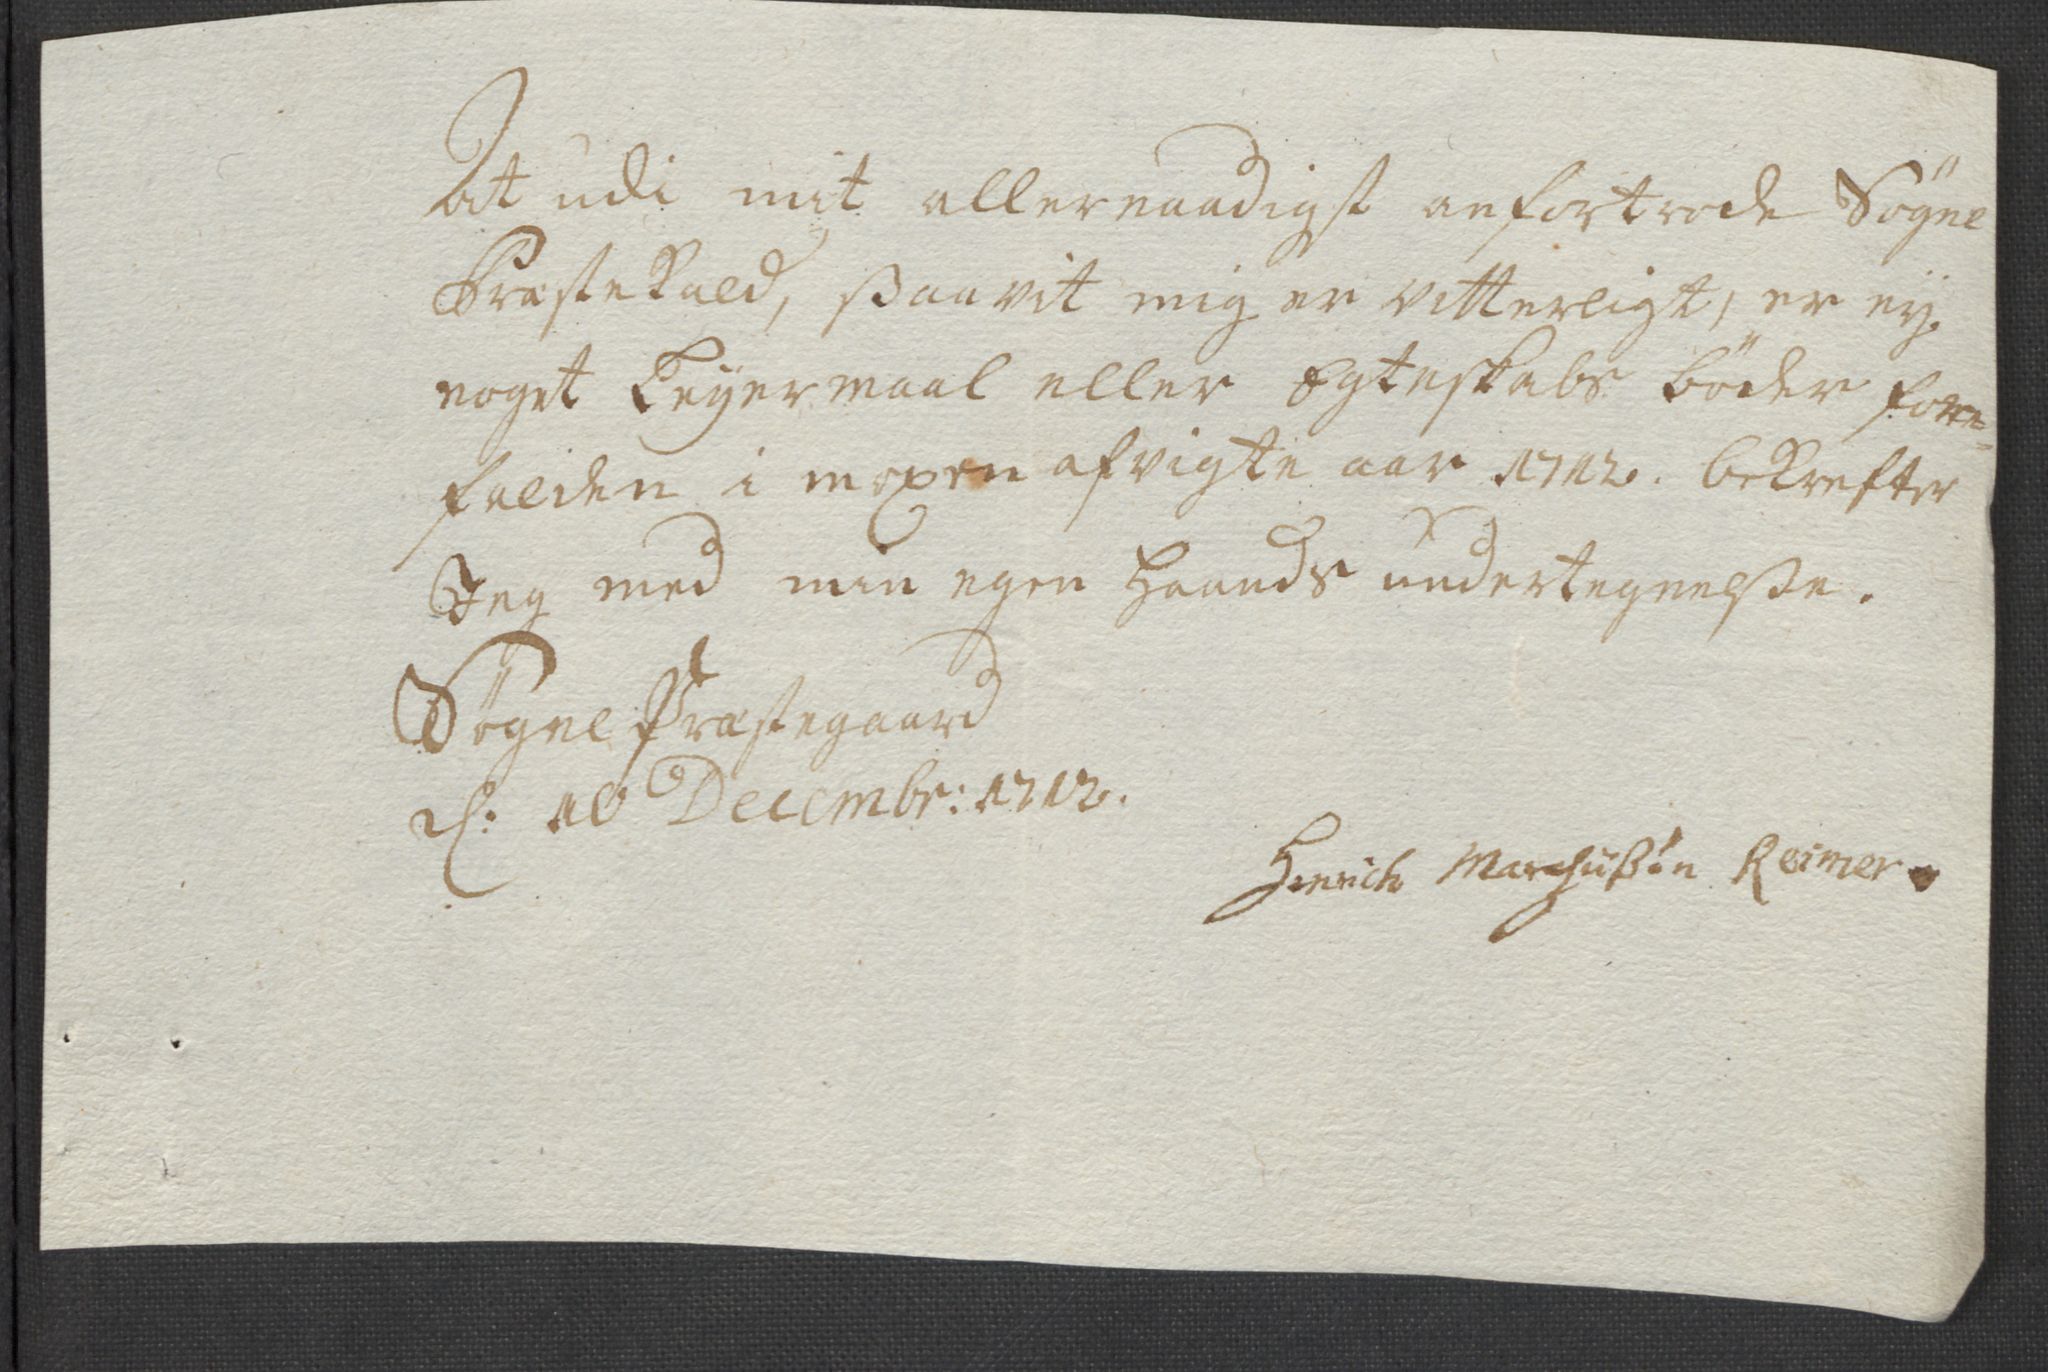 At udi mit allernaadigst anfortrode Sögne
Præstekald, ßaavit mig er vitterligt, er ey
noget Leyermaal eller Egteskabs böder fore-
falden i nærværende afvigte aar 1712. bekrefter
Jeg med min egen Haands undertegnelße.
Sögne Præstegaard
d: 10 Decembr: 1712.
Henrich Marchußen Reimer.